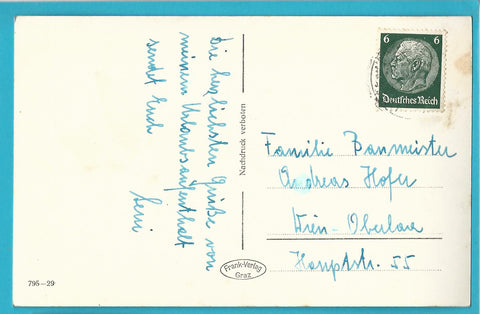 Die herzlichsten Grüße von
meinem Urlaubsaufenthalt
sendet Euch
Nachdruck verboten
6 6
Deutsches Reich
Familie Baumeister
Andreas Hofer
Wien-Oberlaa
Hauptstr. 55
Frank-Verlag
Graz
795-29